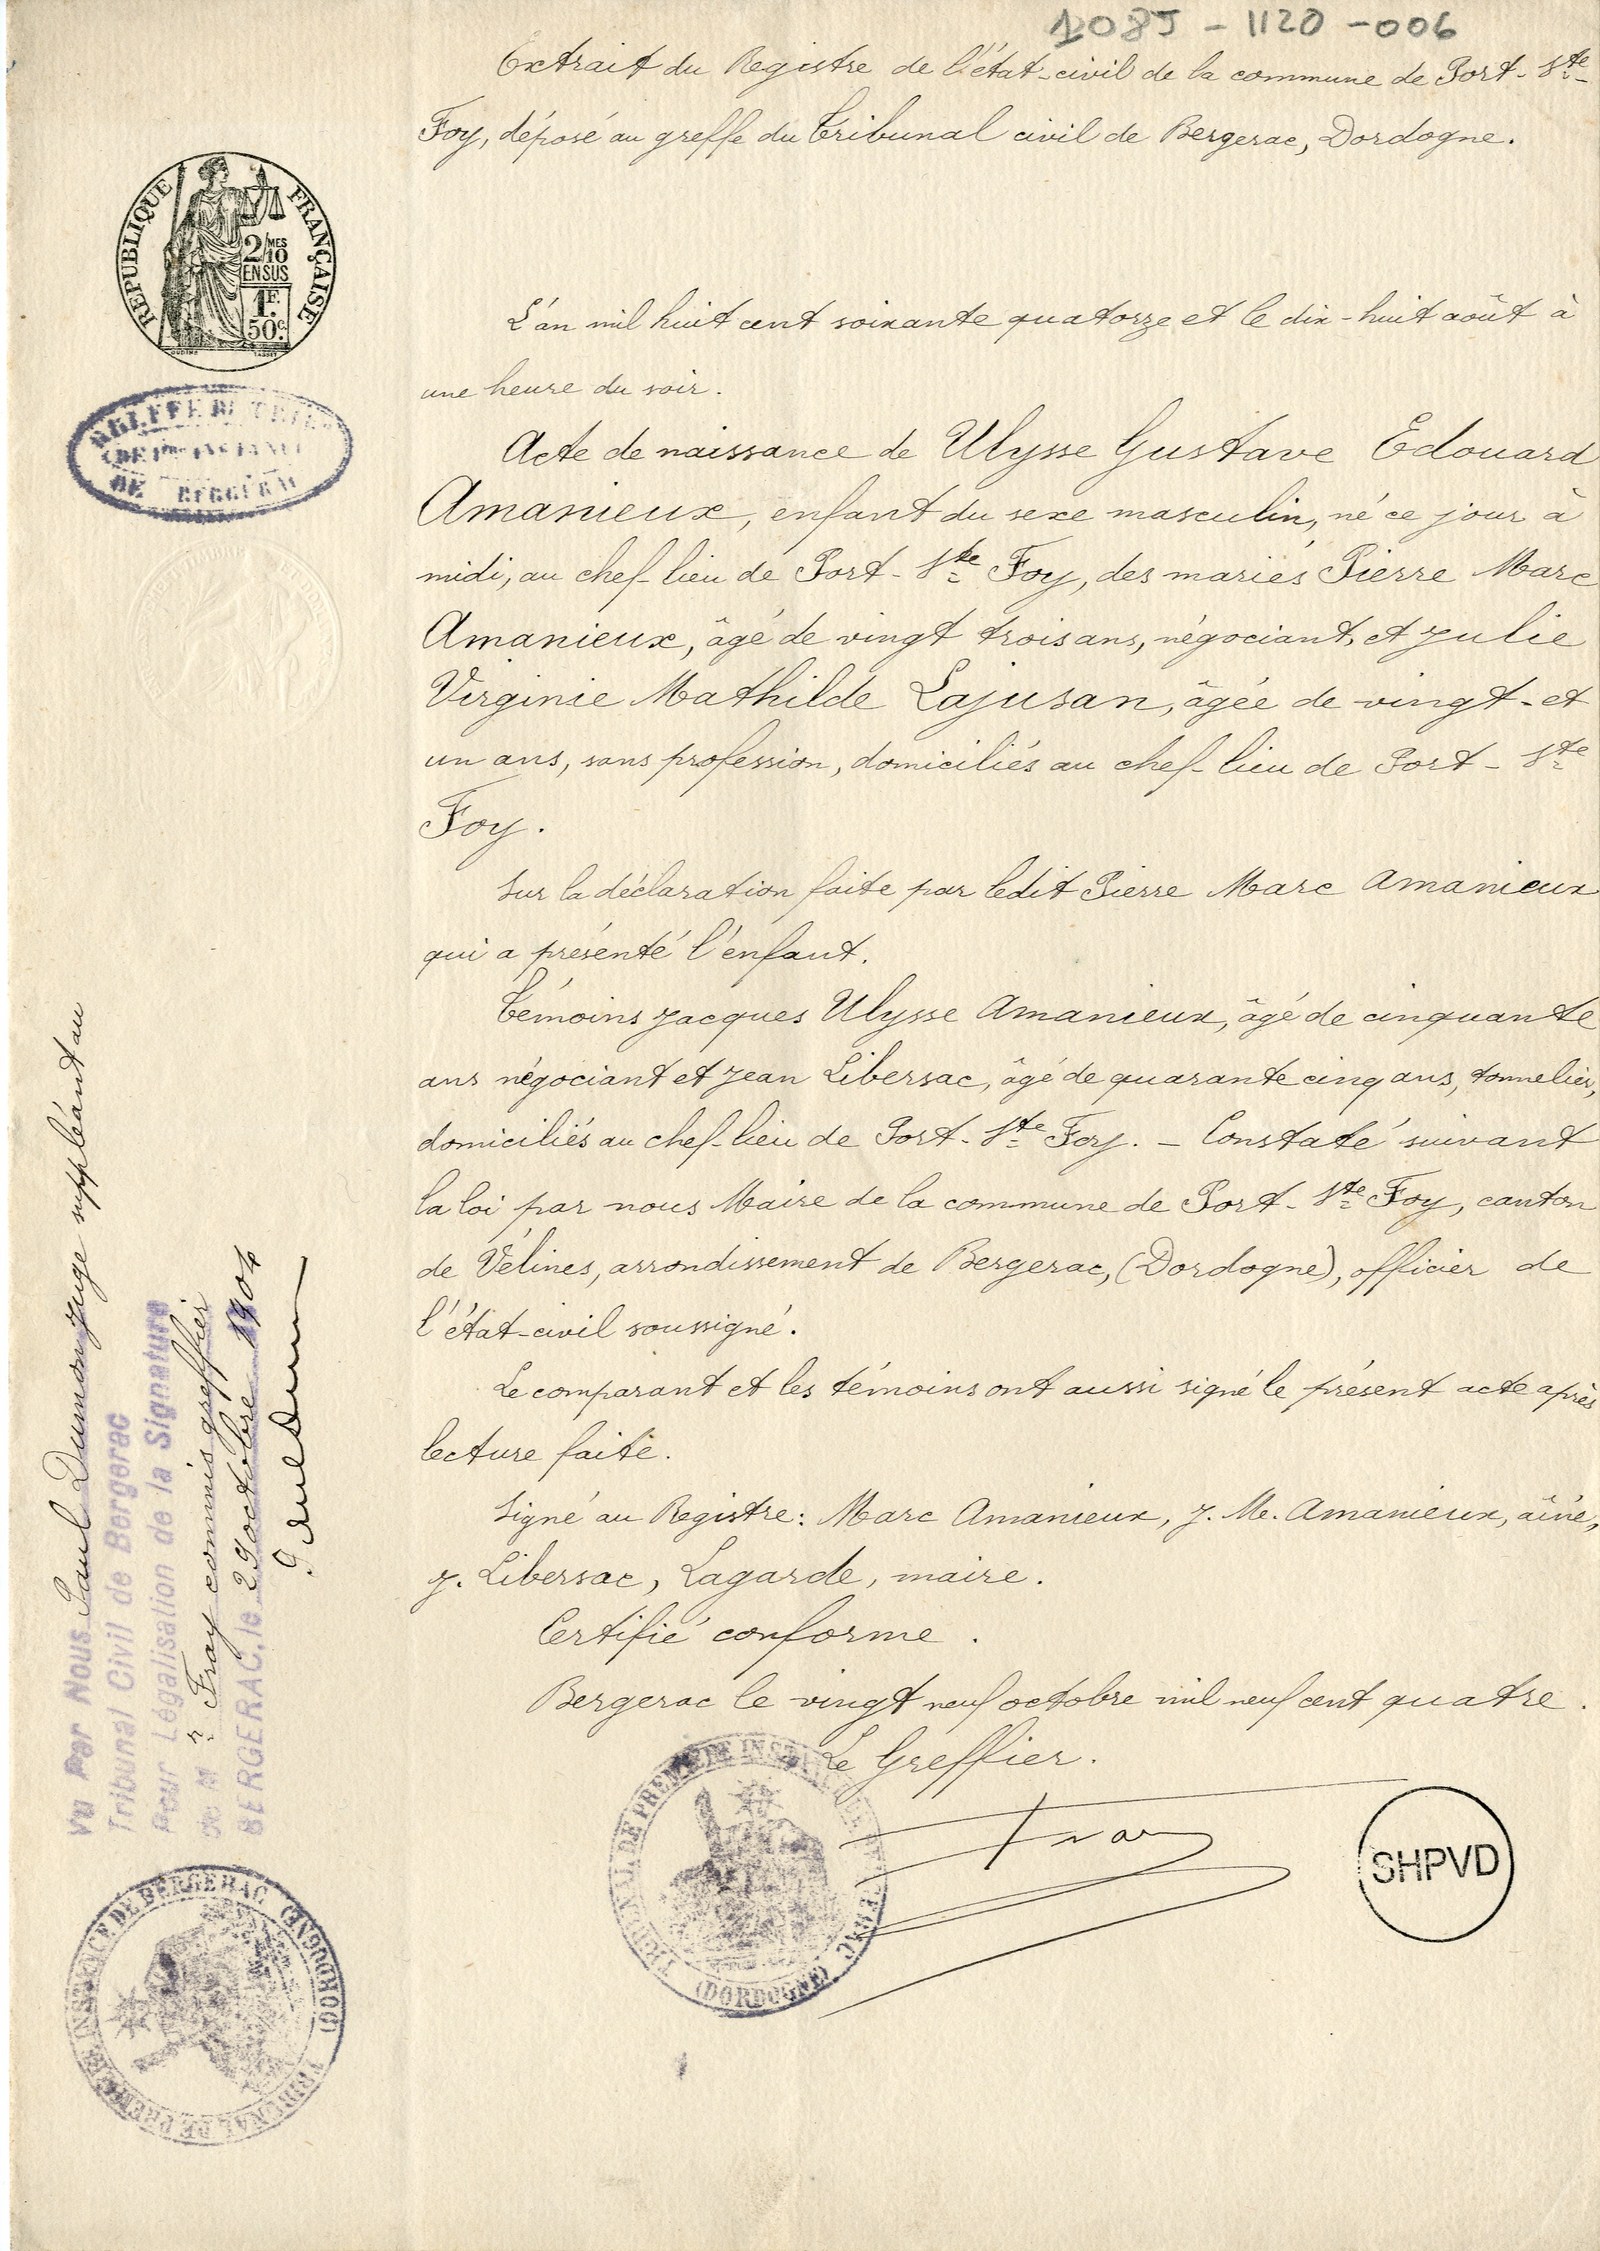 108J - 1120 - 006
Extrait du Registre de l'état-civil de la commune de Port-Ste-
Foy, déposé au greffe du Tribunal civil de Bergerac, Dordogne.
RÉPUBLIQUE FRANÇAISE
2/MES
10
EN SUS
1F.
50c.
OUDINÉ TASSET
DE BERGERAC
L'an mil huit cent soixante quatorze et le dix-huit août à
une heure du soir.
Acte de naissance de Ulysse Gustave Edouard
Amanieux, enfant du sexe masculin, né ce jour à
midi, au chef-lieu de Port-Ste Foy, des mariés Pierre Marc
Amanieux, âgé de vingt trois ans, négociant, et Julie
Virginie Mathilde Lajusan, âgée de vingt-et
un ans, sans profession, domiciliés au chef-lieu de Port-Ste
Foy.
Sur la déclaration faite par ledit Pierre Marc Amanieux
qui a présenté l'enfant.
Témoins Jacques Ulysse Amanieux, âgé de cinquante
ans négociant et Jean Libersac, âgé de quarante cinq ans, tonnelier,
domiciliés au chef-lieu de Port-Ste Foy. – Constaté suivant
la loi par nous Maire de la commune de Port-Ste Foy, canton
de Vélines, arrondissement de Bergerac, (Dordogne), officier de
l'état-civil soussigné.
Le comparant et les témoins ont aussi signé le présent acte après
lecture faite.
Signé au Registre: Marc Amanieux, J. M. Amanieux, aîné,
J. Libersac, Lagarde, maire.
Certifié conforme.
Bergerac le vingt neuf octobre mil neuf cent quatre.
Le Greffier.
Fray
TRIBUNAL DE PREMIERE INSTANCE DE BERGERAC
(DORDOGNE)
SHPVD
Vu Par Nous Paul Dumon juge suppléant au
Tribunal Civil de Bergerac
Pour Légalisation de la Signature
de Mr Fray commis greffier
BERGERAC, le 29 octobre 1904
Paul Dumon
TRIBUNAL DE PREMIERE INSTANCE DE BERGERAC (DORDOGNE)